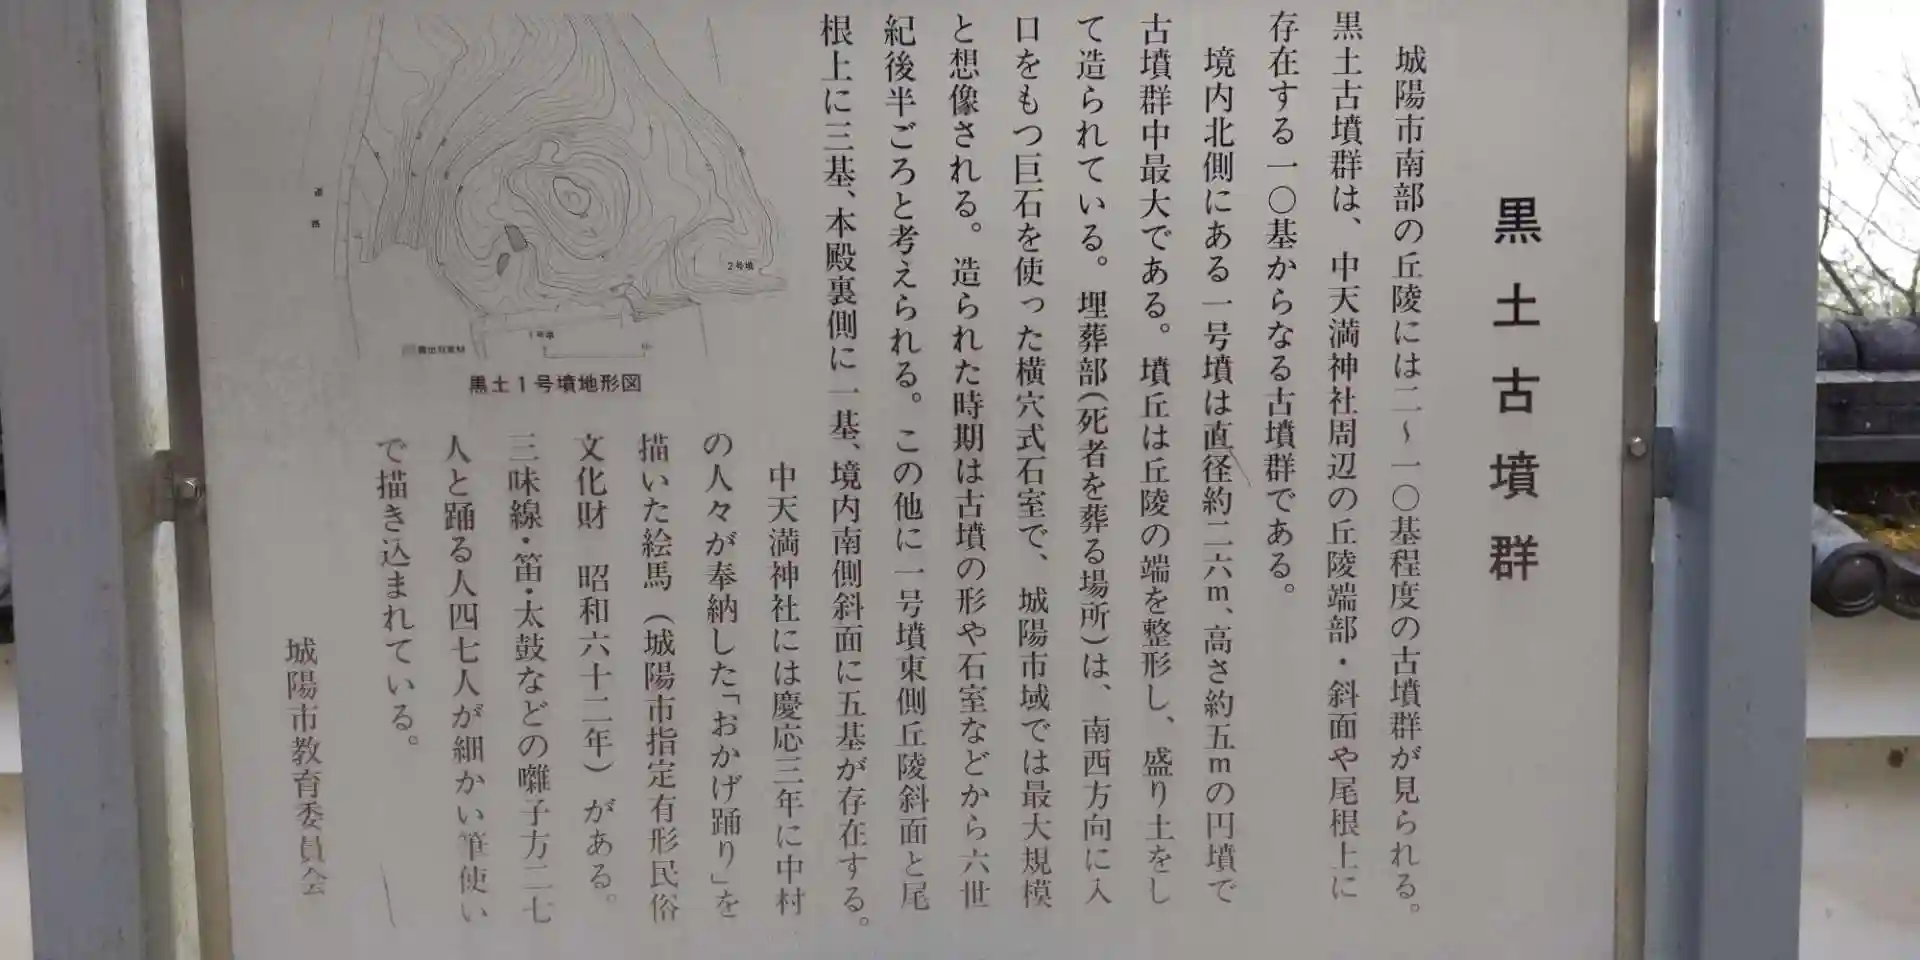 黒土古墳群
城陽市南部の丘陵には二〜一〇基程度の古墳群が見られる。
黒土古墳群は、中天満神社周辺の丘陵端部・斜面や尾根上に
存在する一〇基からなる古墳群である。
境内北側にある一号墳は直径約二六m、高さ約五mの円墳で
古墳群中最大である。墳丘は丘陵の端を整形し、盛り土をし
て造られている。埋葬部(死者を葬る場所)は、南西方向に入
口をもつ巨石を使った横穴式石室で、城陽市域では最大規模
と想像される。造られた時期は古墳の形や石室などから六世
紀後半ごろと考えられる。この他に一号墳東側丘陵斜面と尾
根上に三基、本殿裏側に一基、境内南側斜面に五基が存在する。
中天満神社には慶応三年に中村
の人々が奉納した「おかげ踊り」を
描いた絵馬(城陽市指定有形民俗
文化財 昭和六十二年)がある。
三味線・笛・太鼓などの囃子方二七
人と踊る人四七人が細かい筆使い
で描き込まれている。
城陽市教育委員会
道路
2号墳
1号墳
黒土1号墳地形図